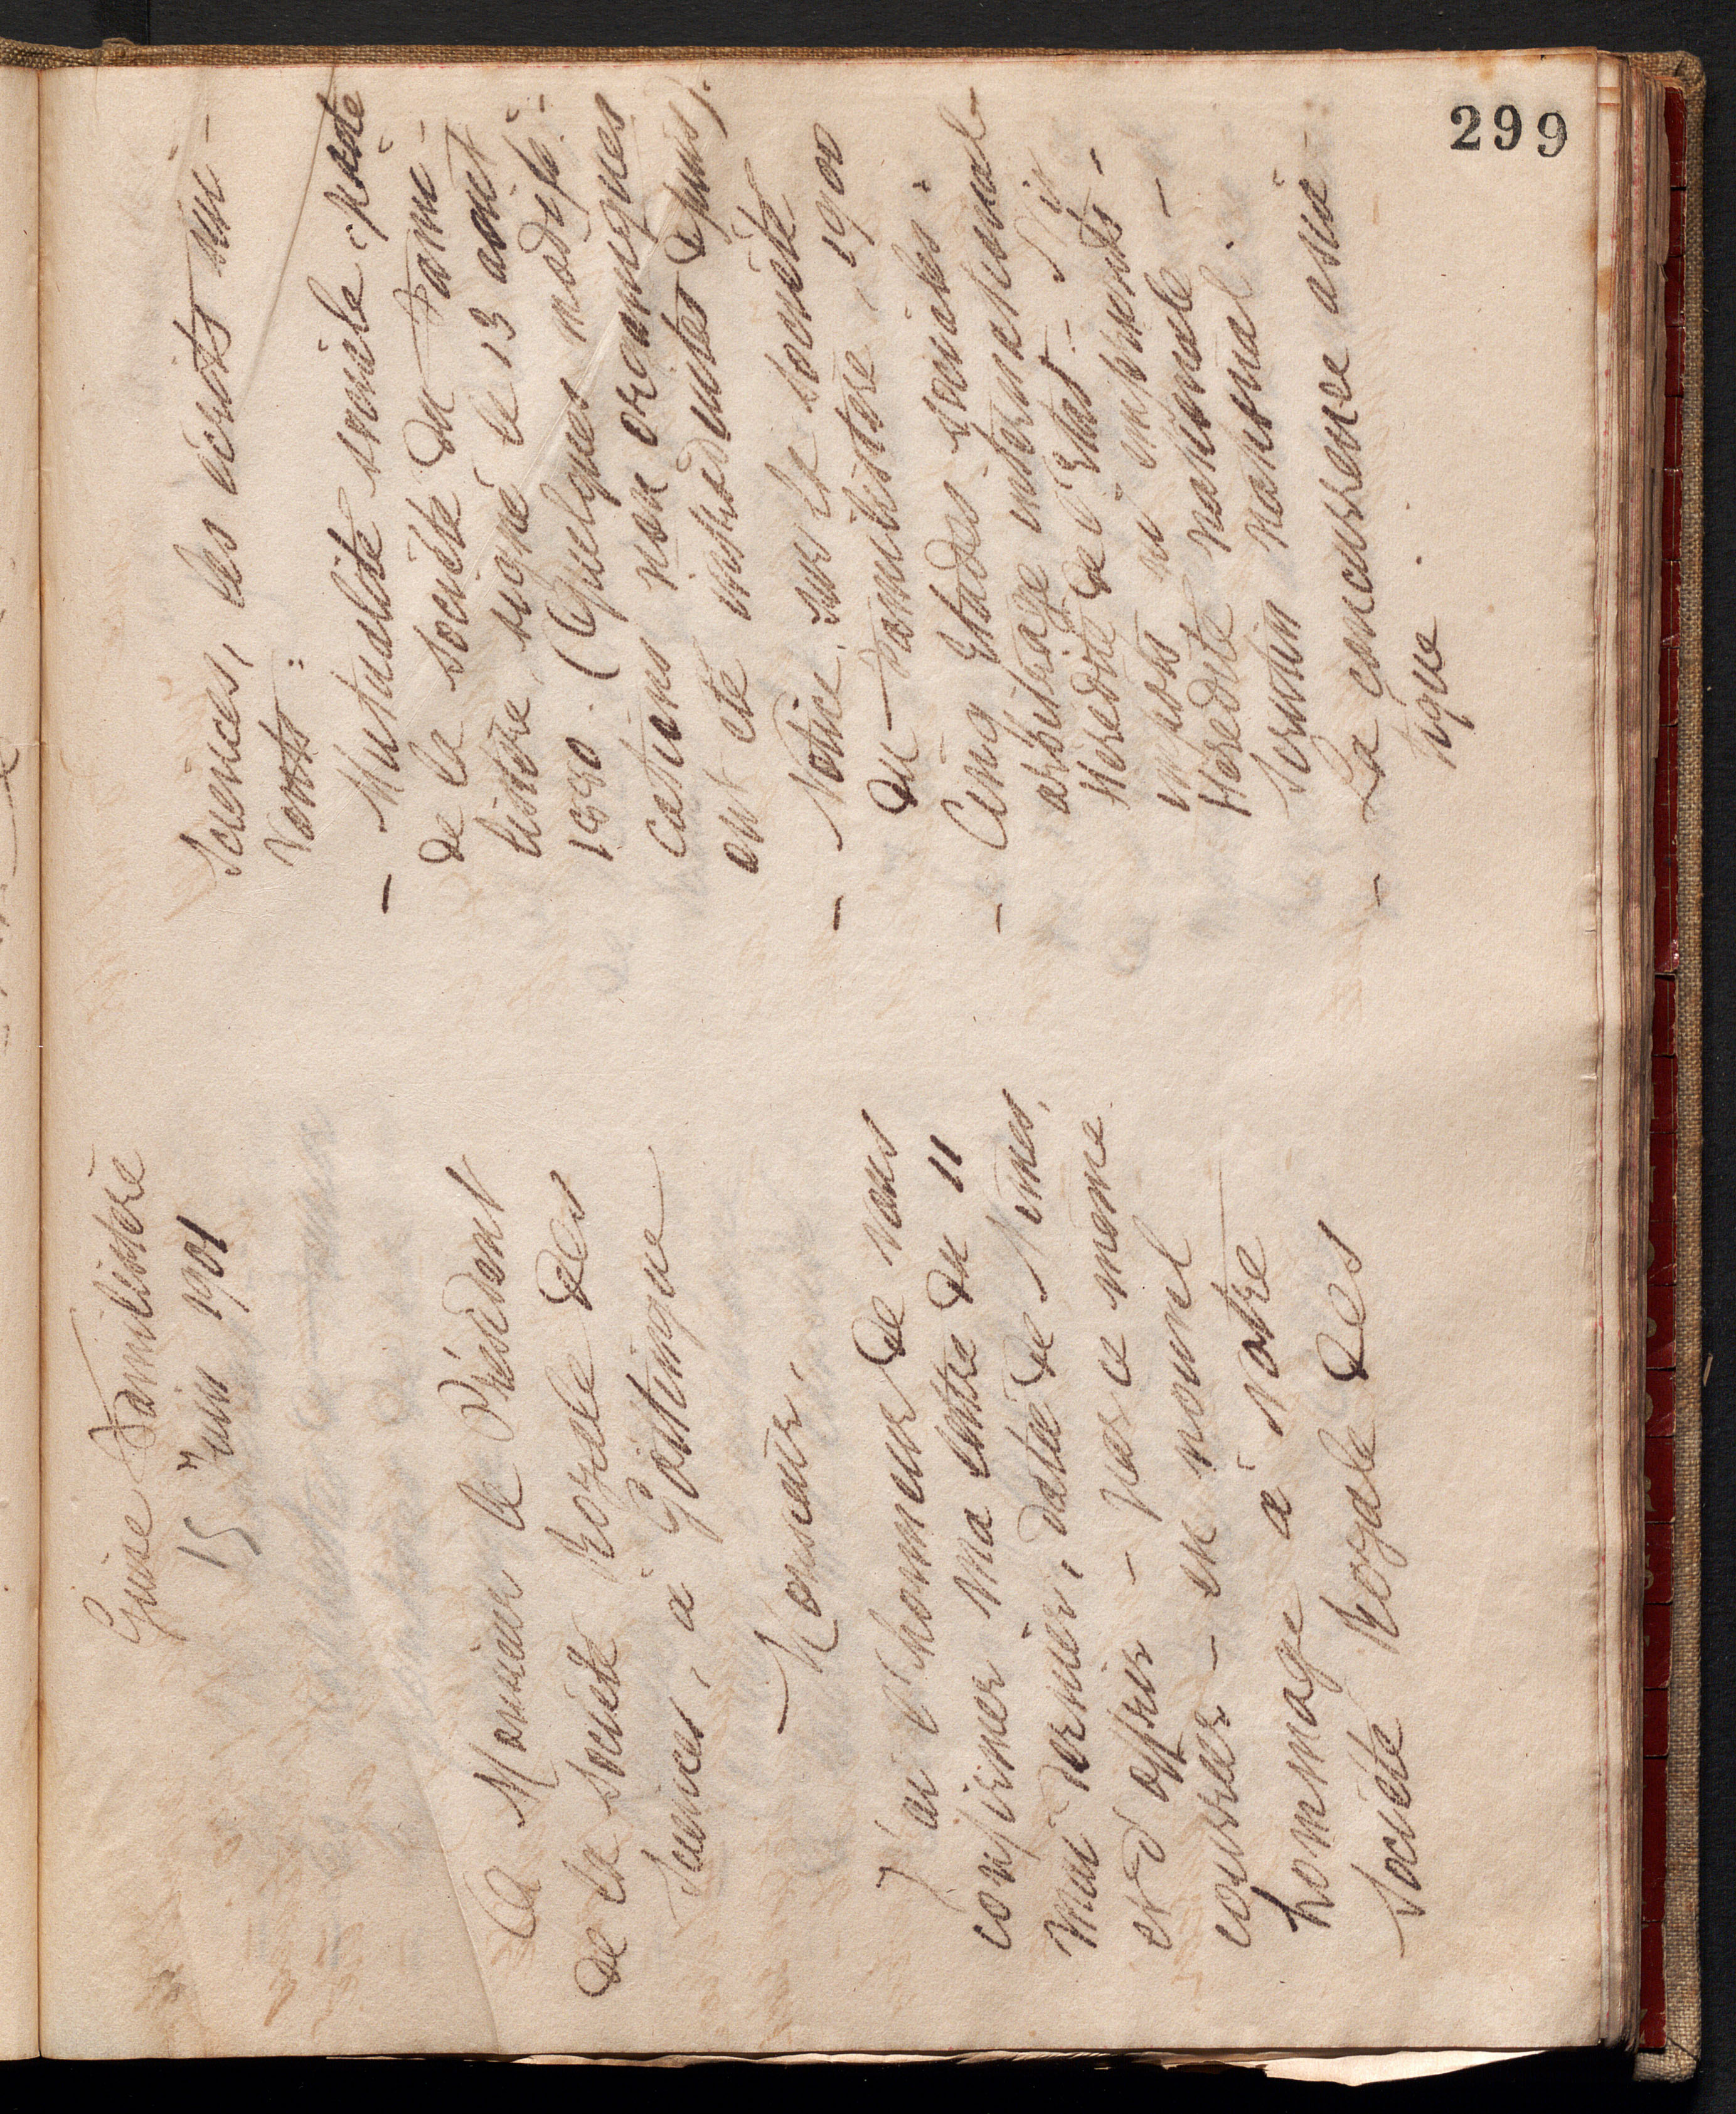 299
Guise Familistère
15 Juin 1901
A Monsieur le Président
de la Société Royale des
Sciences, à Goettingue
Monsieur,
J'ai l'honneur de vous
confirmer ma lettre du 11
mai dernier, datée de Nimes,
et d'offrir - par ce même
courrier - en nouvel
hommage à votre
Société Royale des
Sciences, les écrits sui-
vants :
- Mutualité sociale (pacte
de la société du Fami-
listère, signé le 13 août
1880. (Quelques modifi-
cations non organiques
ont été introduites depuis).
- Notice sur la société
du Familistère, 1900
- Cinq Etudes sociales :
arbitrage international -
Hérédité de l'Etat - Ni
impôts ni emprunts -
Hérédité nationale -
Scrutin national.
- La concurrence asia-
tique.